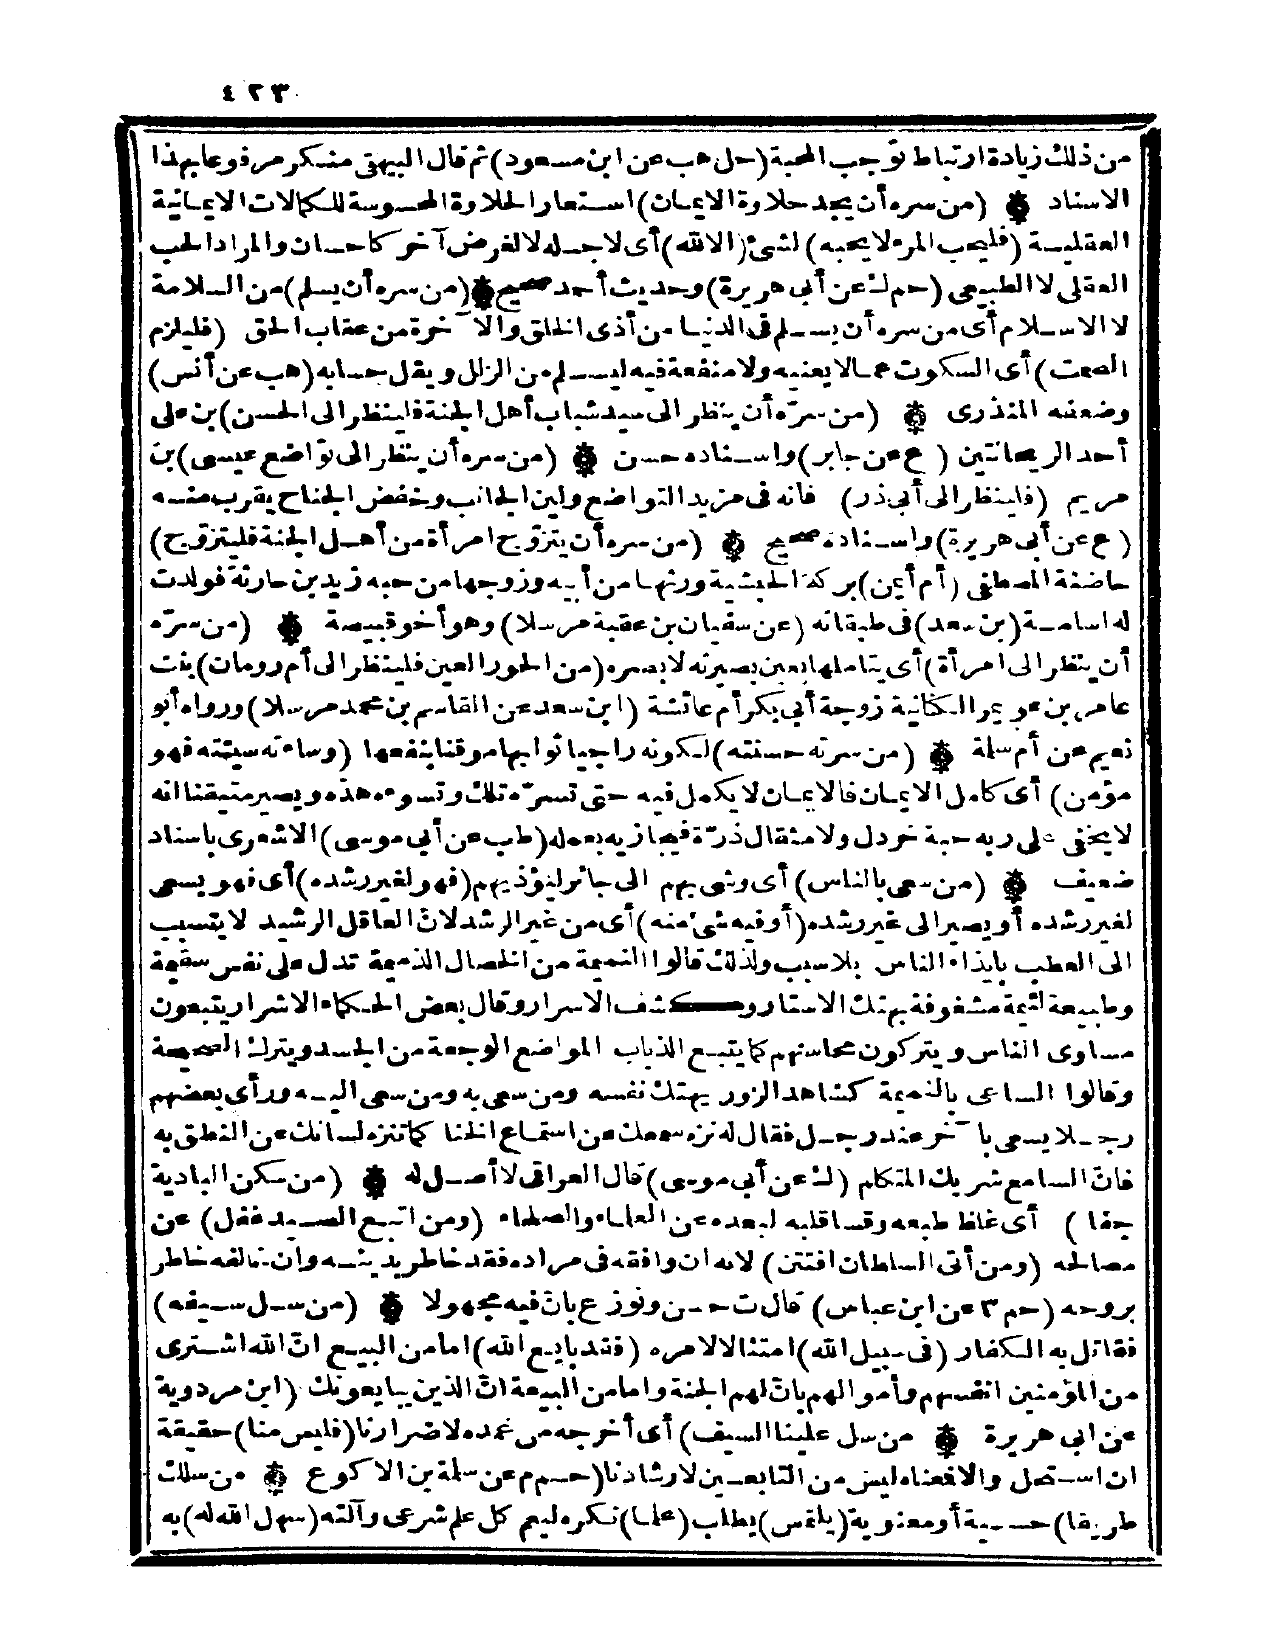 ٤٢٣
من ذلك زيادة ارتباط توجب المحبة (حل هب عن ابن مسعود) ثم قال البيهقى منكر مرفوعا بهذا
الاسناد ۞ (من سره أن يجد حلاوة الايمان) استعار الحلاوة المحسوسة للكمالات الايمانية
العقلية (فليحب المرء لا يحبه) لشئ (الا لله) أى لاجله لا لغرض آخر كاحسان والمراد الحب
العقلى لا الطبيعى (حم ك عن أبى هريرة) وحديث أحمد صحيح ۞ (من سره أن يسلم) من السلامة
لا الاسلام أى من سره أن يسلم فى الدنيا من أذى الخلق والآخرة من عقاب الحق (فليلزم
الصمت) أى السكوت عما لا يعنيه ولا منفعة فيه ليسلم من الزلل ويقل حسابه (هب عن أنس)
وضعفه المنذرى ۞ (من سره أن ينظر الى سيد شباب أهل الجنة فلينظر الى الحسن) بن على
أحد الريحانتين (ع عن جابر) واسناده حسن ۞ (من سره أن ينظر الى تواضع عيسى) بن
مريم (فلينظر الى أبى ذر) فانه فى مزيد التواضع ولين الجانب وخفض الجناح يقرب منه
(ع عن أبى هريرة) واسناده صحيح ۞ (من سره أن يتزوج امرأة من أهل الجنة فليتزوج)
حاضنة المصطفى (أم أيمن) بركة الحبشية ورثها من أبيه وزوجها من حبه زيد بن حارثة فولدت
له اسامة (بن سعد) فى طبقاته (عن سفيان بن عقبة مرسلا) وهو أخو قبيصة ۞ (من سرّه
أن ينظر الى امرأة) أى يتأملها بعين بصيرته لا بصره (من الحور العين فلينظر الى أم رومان) بنت
عامر بن عويمر الكنانية زوجة أبى بكر أم عائشة (ابن سعد عن القاسم بن محمد مرسلا) ورواه أبو
نعيم عن أم سلة ۞ (من سرته حسنته) لكونه راجيا ثوابها موقنا بنفعها (وساءته سيئته فهو
مؤمن) أى كامل الايمان فالايمان لا يكمل فيه حتى تسرّه تلك وتسوءه هذه ويصير متيقنا انه
لا يخفى على ربه حبة خردل ولا مثقال ذرّة فيجازيه بعمله (طب عن أبى موسى) الاشعرى باسناد
ضعيف ۞ (من سعى بالناس) أى وشى بهم الى جائر ليؤذيهم (فهو لغير رشده) أى فهو يسعى
لغير رشده أو يصير الى غير رشده (أو فيه شئ منه) أى من غير الرشد لانّ العاقل الرشيد لا يتسبب
الى العطب بايذاء الناس بلا سبب ولذلك قالوا النميمة من الخصال الذميمة تدل على نفس سقيمة
وطبيعة لئيمة مشغوفة بهتك الاستار وكشف الاسرار وقال بعض الحكماء الاشرار يتبعون
مساوى الناس ويتركون محاسنهم كما يتبع الذباب المواضع الوجعة من الجسد ويترك الصحيحة
وقالوا الساعى بالنميمة كشاهد الزور يهتك نفسه ومن سعى به ومن سعى اليه ورأى بعضهم
رجلا يسعى بآخر عند رجل فقال له نزه سمعك عن استماع الخنا كما تنزه لسانك عن النطق به
فانّ السامع شريك المتكلم (ك عن أبى موسى) قال العراقى لا أصل له ۞ (من سكن البادية
جفا) أى غلظ طبعه وقسا قلبه لبعده عن العلماء والصلحاء (ومن اتبع الصيد غفل) عن
مصالحه (ومن أتى السلطان افتتن) لانه ان وافقه فى مراده فقد خاطر بدينه وان خالفه خاطر
بروحه (حم ٣ عن ابن عباس) قال ت حسن ونوزع بانّ فيه مجهولا ۞ (من سل سيفه)
فقاتل به الكفار (فى سبيل الله) امتثالا لامره (فقد بايع الله) اما من البيع انّ الله اشترى
من المؤمنين انفسهم وأموالهم بانّ لهم الجنة واما من البيعة انّ الذين يبايعونك (ابن مردوية
عن ابى هريرة ۞ من سل علينا السيف) أى أخرجه من غمده لاضرارنا (فليس منا) حقيقة
ان استحل والا فعناه ليس من التابعين لارشادنا (حم م عن سلة بن الاكوع ۞ من سلك
طريقا) حسية أو معنوية (يلتمس) يطلب (علما) نكره ليم كل علم شرعى وآلته (سهل الله له) به